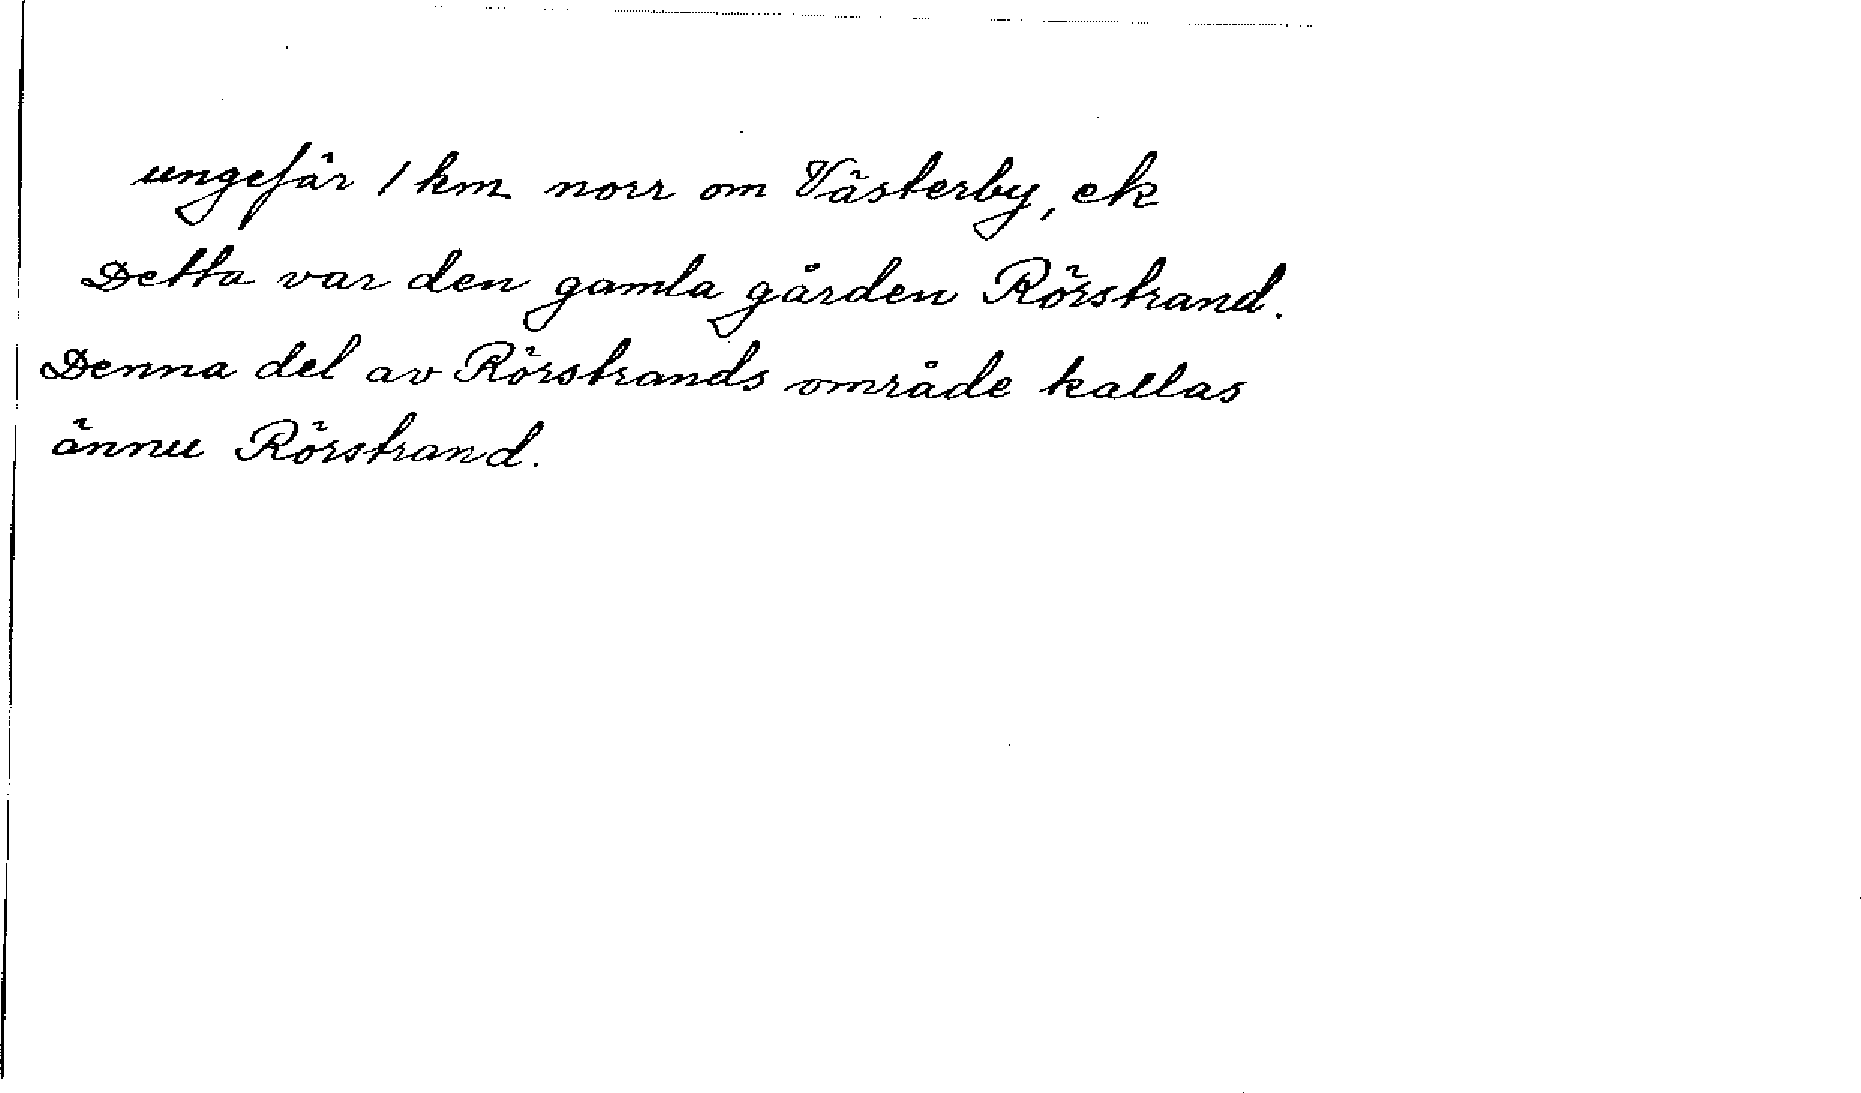 ungefär 1 km norr om Västerby, ek
Detta var den gamla gården Rörstrand.
Denna del av Rörstrands område kallas
ännu Rörstrand.